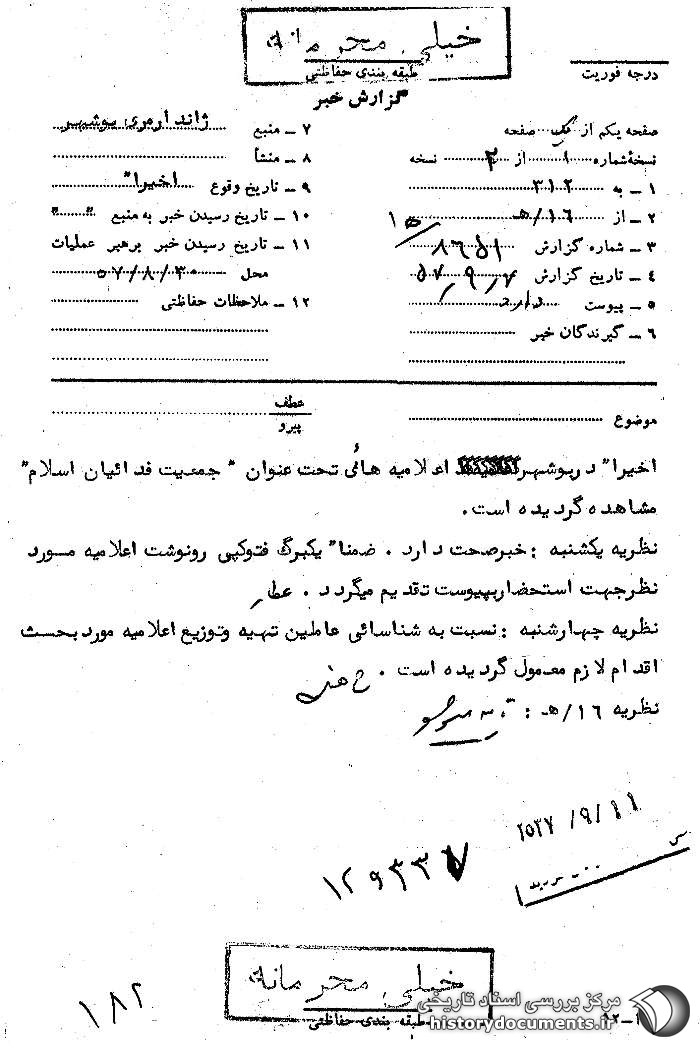 خیلی محرمانه
طبقه بندی حفاظتی
درجه فوریت
گزارش خبر
صفحه یکم از یک صفحه
نسخهٔ شماره ۱ از ۲ نسخه
۱ ـ به ۳۱۲
۲ ـ از ۱۶/هـ ۱۵
۳ ـ شماره گزارش ۸۶۵۱
۴ ـ تاریخ گزارش ۵۷.۹.۷
۵ ـ پیوست دارد
۶ ـ گیرندگان خبر
۷ ـ منبع ژاندارمری بوشهر
۸ ـ منشأ
۹ ـ تاریخ وقوع اخیرا"
۱۰ ـ تاریخ رسیدن خبر به منبع " "
۱۱ ـ تاریخ رسیدن خبر برهبر عملیات
محل ۵۷/۸/۳۰
۱۲ ـ ملاحظات حفاظتی
موضوع
عطف
پیرو
اخیرا" دربوشهر اعلامیه هائی تحت عنوان " جمعیت فدائیان اسلام"
مشاهده گردیده است.
نظریه یکشنبه : خبرصحت دارد . ضمنا" یکبرگ فتوکپی رونوشت اعلامیه مسورد
نظرجهت استحضاربپیوست تقدیم میگردد . عطار
نظریه چهارشنبه : نسبت به شناسائی عاملین تهیه وتوزیع اعلامیه مورد بحسث
اقدام لازم معمول گردیده است .
نظریه ۱۶/هـ :
۲۵۳۷/۹/۱۱
۱۲۹۳۳۷
خیلی محرمانه
طبقه بندی حفاظتی
۱۸۲
مرکز بررسی اسناد تاریخی
historydocuments.ir